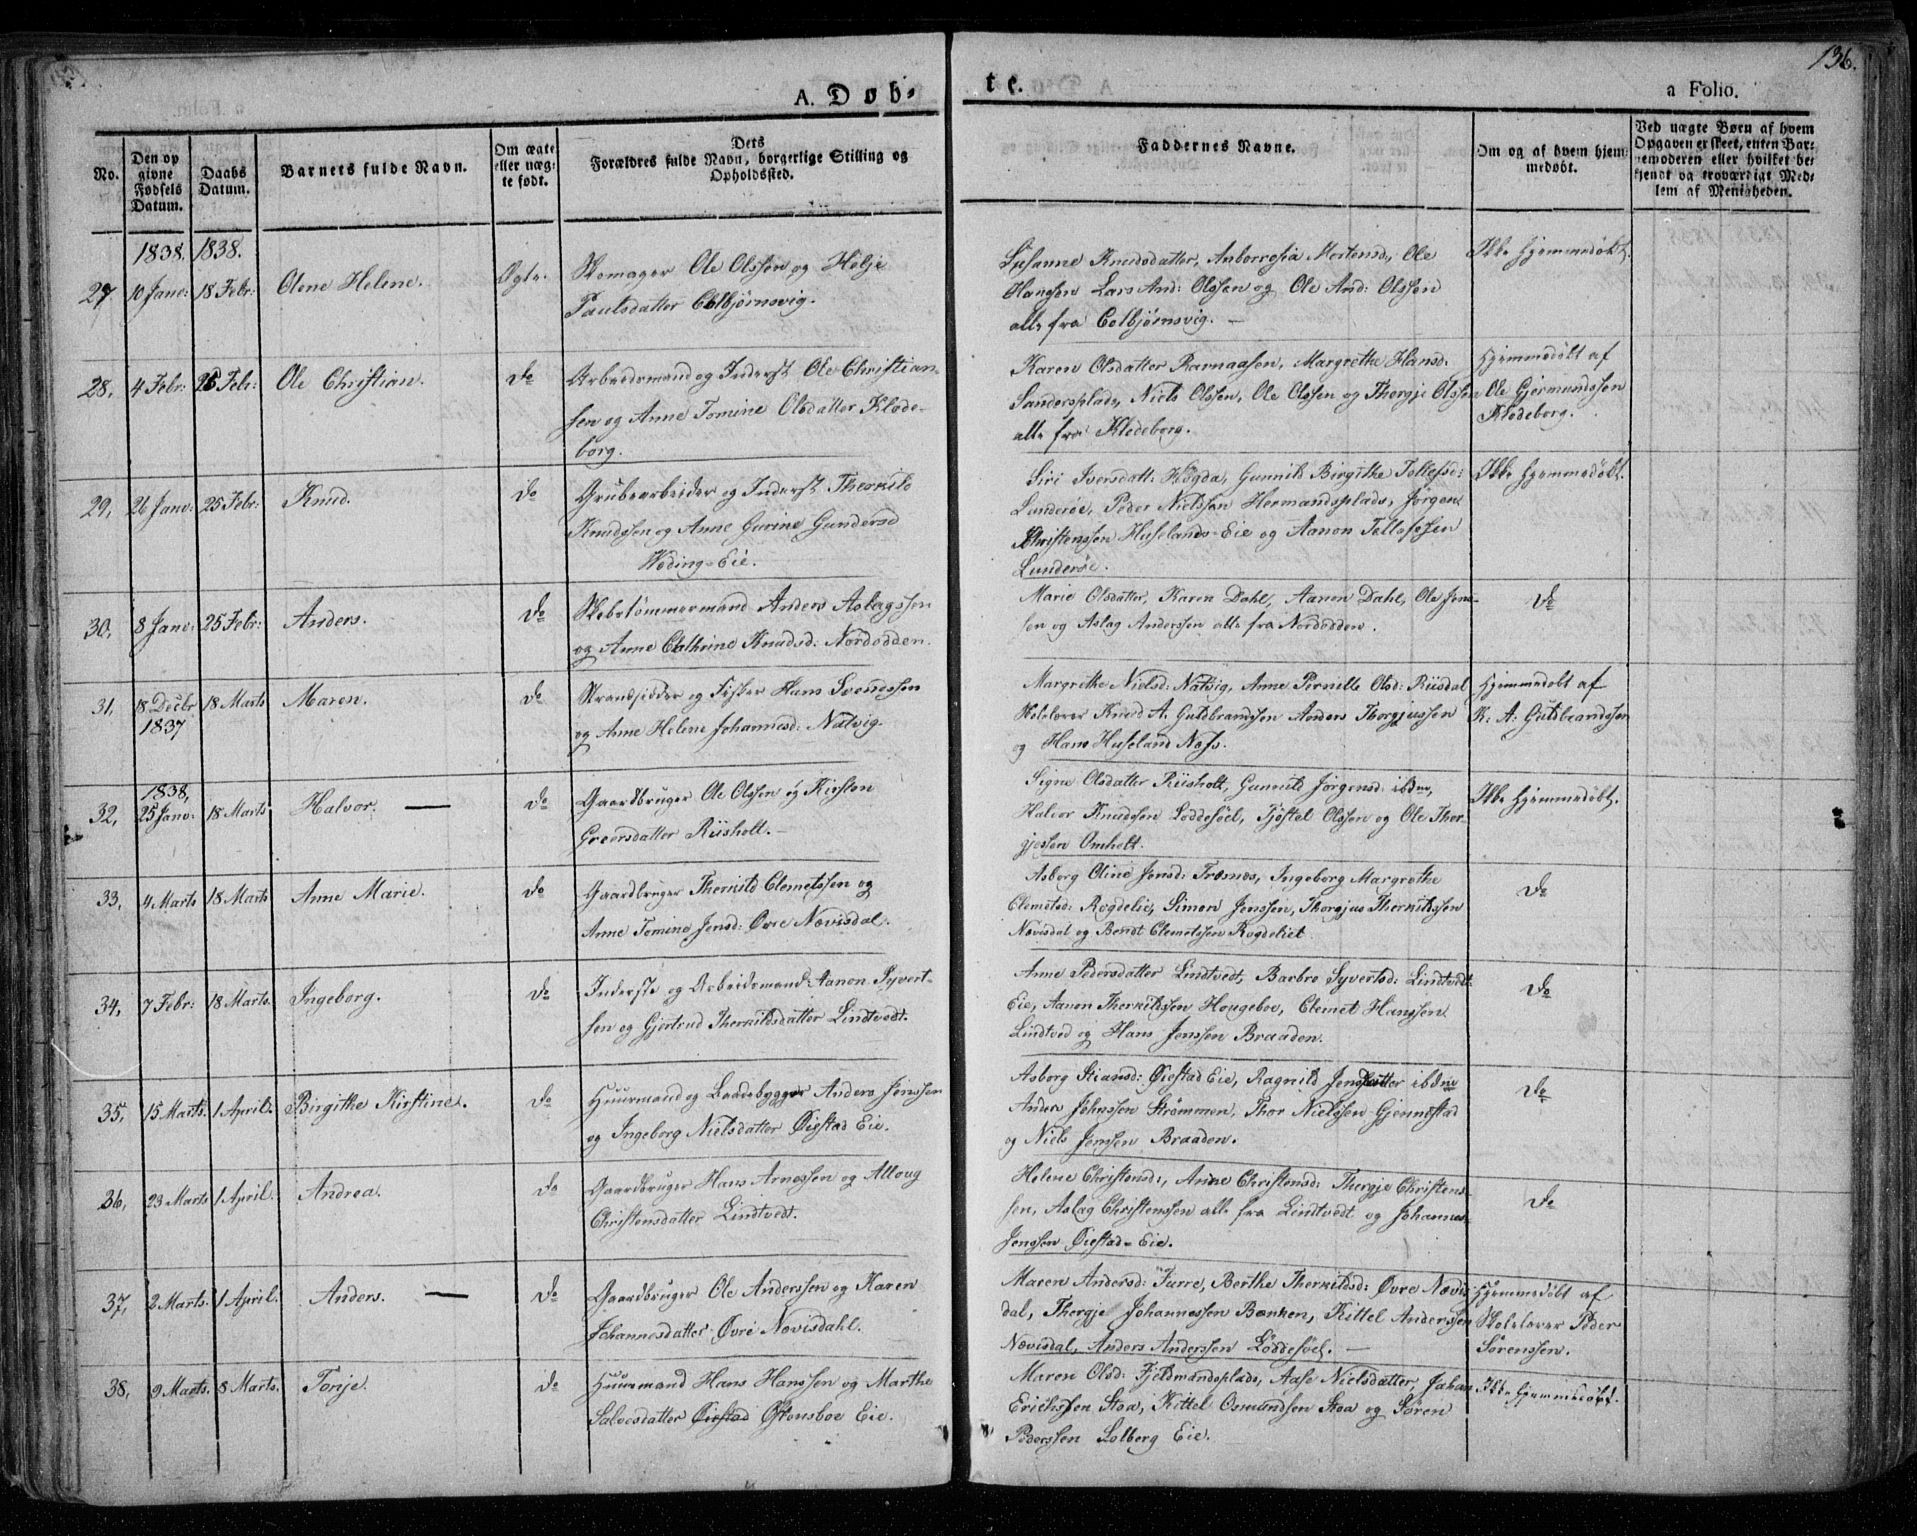 136.
A. Døb-
te.
a Folio.
No.
Den op
givne
Fødsels
Datum.
Daabs
Datum.
Barnets fulde Navn.
Om ægte
eller næg-
te født.
Dets
Forældres fulde Navn, borgerlige Stilling og
Opholdssted.
Faddernes Navne.
Om og af hvem hjem
medøbt.
Ved nægte Børn af hvem
Opgaven er skeet, enten Bar-
nemoderen eller hvilket be
kjendt og troværdigt Med-
lem af Menigheden.
1838. 1838.
27 10 Janv: 18 Febr: Olene Helene. Ægte.
Skomager Ole Olssen og Helje
Paulsdatter Colbjørnsvig.
Susanne Knudsdatter, Anborrosia Mortensd, Ole
Hanssen Lars And: Olssen og Ole And: Olssen
alle fra Colbjørnsvig. —
Ikke hjemmedøbt.
28. 4 Febr: 25 Febr: Ole Christian. do
Arbeidsmand og Inderst Ole Christian-
sen og Anne Tomine Olsdatter Kløde-
borg.
Karen Olsdatter Ramaasen, Margrethe Hansd.
Sandersplads, Niels Olssen, Ole Olssen og Thorgje Olssen
alle fra Klødeborg.
Hjemmedøbt af
Ole Gjermundssen
Klødeborg.
29, 26 Janv: 25 Febr: Knud. do
Grubearbeider og Inderst Therkild
Knudssen og Anne Gurine Gundersd
Weding-Eie.
Siri Iversdatt: Høgda, Gunnild Birgithe Tellefsd:
Lunderøe, Peder Nielssen Hermandsplads, Jørgen
Christenssen Huselands-Eie og Aanon Tellefssen
Lunderøe.
Ikke hjemmedøbt.
30, 8 Janv: 25 Febr: Anders. do
Skibstømmermand Anders Aslagssen
og Anne Cathrine Knudsd: Nordodden.
Marie Olsdatter, Karen Dahl, Aanon Dahl, Ole Jens-
sen og Aslag Anderssen alle fra Nordodden.
do
31, 18 Decbr 18 Marts Maren. do
1837
Strandsidder og Fisker Hans Svendssen
og Anne Helene Johannesd: Natvig.
Margrethe Nielsd: Natvig, Anne Pernille Olsd: Riisdal
Skolelærer Knud A. Guldbrandssen Anders Thorgjussen
og Hans Huseland Næss.
Hjemmedøbt af
K. A. Guldbrandssen
1838,
32, 25 Janv: 18 Marts Halvor. — do
Gaardbruger Ole Olssen og Kirsten
Greersdatter Riisholt. —
Signe Olsdatter Riisholt, Gunnild Jørgensd: ibdm,
Halvor Knudssen Løddesøel, Fjøstel Olssen og Ole Thor-
gjussen Omholt.
Ikke hjemmedøbt.
33, 4 Marts 18 Marts Anne Marie. do
Gaardbruger Therkild Clemetssen og
Anne Tomine Jensd: Øvre Nævisdal.
Asborg Oline Jensd: Tromøe, Ingeborg Margrethe
Clemetsd: Røgdelie, Simon Jenssen, Thorgjus Therkildssen
Nævisdal og Bendt Clemetssen Røgdeliet.
do
34, 7 Febr: 18 Marts. Ingeborg. do
Inderste og Arbeidsmand Aanon Syvert-
sen og Gjertrud Therkildsdatter Lindtvedt.
Anne Pedersdatter Lindtvedt, Barbro Syvertsd: Lindtvedt
Eie, Aanon Therkildssen Hougeboe, Clemet Hanssen
Lindtved og Hans Jenssen Braaden.
do
35, 15 Marts. 1 April. Birgithe Kirstine. do
Huurmand og Baadebygger Anders Jenssen
og Ingeborg Nielsdatter Øiestad Eie.
Asborg Stiansd: Øiestad Eie, Ragnild Jensdatter ibdm
Anders Johnssen Strømmen, Thor Nielssen Gjennestad
og Niels Jenssen Braaden.
do
36, 23 Marts 1 April. Andrea. do
Gaardbruger Hans Arnessen og Alloug
Christensdatter Lindtvedt.
Helene Christensd:, Anne Christensd: Thorgje Christens-
sen, Aslag Christenssen alle fra Lindtvedt og Johannes
Jenssen Øiestad-Eie.
do
37, 2 Marts. 1 April. Anders. — do
Gaardbruger Ole Anderssen og Karen
Johannesdatter Øvre Nævisdahl.
Maren Andersd: Furre, Berthe Therkildsd: Øvre Nævis-
dal, Thorgje Johannessen Banken, Kittel Anderssen
Nævisdal, Anders Anderssen Løddesøel. —
Hjemmedøbt af
Skolelærer Peder
Sørenssen.
38, 9 Marts. 8 Marts. Terje. do
Huurmand Hans Hanssen og Marthe
Salvesdatter Øiestad Østensboe Eie.
Maren Olsd: Fjeldmandsplads, Aase Nielsdatter, Johan
Erichssen Stoa, Kittel Osmundsen Stoa og Søren
Pederssen Solberg Eie.
Ikke hjemmedøbt.